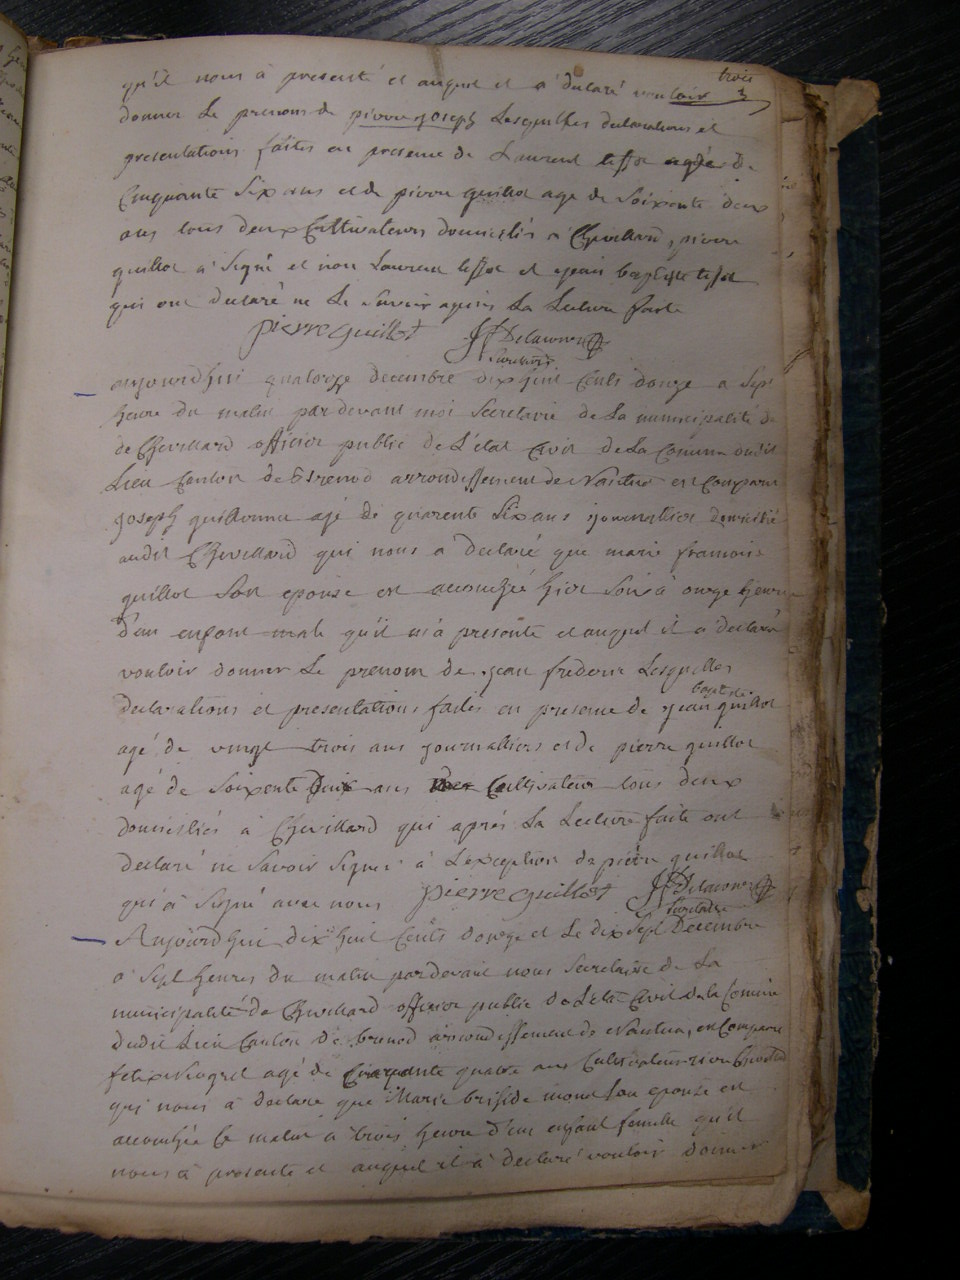 trois
qu'il nous à presenté et auquel il à declaré vouloir
donner le prenom de pierre joseph Lesquelles declarations et
presentations faites en presence de Laurent tissot agée de
Cinquante Six ans et de pierre guillot age de Soixente deux
ans tous deux Cultivateurs domiciliés à Chevillard, pierre
guillot à Signé et non Laurent tissot et jean baptiste tissot
qui ont declaré ne le Savoir après La Lecture faite
pierre guillot J Delaurens
Secretaire
aujourdhui quatorze decembre dix huit Cents douze a Sept
heure du matin par devant moi Secretaire de La municipalité de
de Chevillard officier public de L'état Civil de La Commune dudit
Lieu Canton de Brenod arrondissement de Nantua est Comparu
joseph guillaume agé de quarente Six ans journallier domicilié
audit Chevillard qui nous a declaré que marie francoise
guillot Son epouse est accouchée hier Soir à onze heure
d'un enfant male qu'il m'a presenté et auquel il a declaré
vouloir donner Le prenom de jean frederic Lesquelles
baptiste
declarations et presentations faites en presence de jean guillot
agé de vingt trois ans journalliers et de pierre guillot
agé de Soixente deux ans Cultivateur tous deux
domiciliés à Chevillard qui après La Lecture faite ont
declaré ne Savoir Signer à L'exception de pierre guillot
qui à Signé avec nous pierre guillot J Delaurens
Secretaire
Aujourdhui dix huit Cents douze et Le dix Sept Decembre
a Sept heures du matin pardevant nous Secretaire de La
municipalité de Chevillard officier public de L'état Civil de la Commune
dudit Lieu Canton de brenod arrondissement de Nantua, est Comparu
felix agé de quatre ans Cultivateur
qui nous à declaré que Marie brigide Son epouse est
accouchée Ce matin a trois heure d'un enfant femelle qu'il
nous à presenté et auquel il à declaré vouloir donner